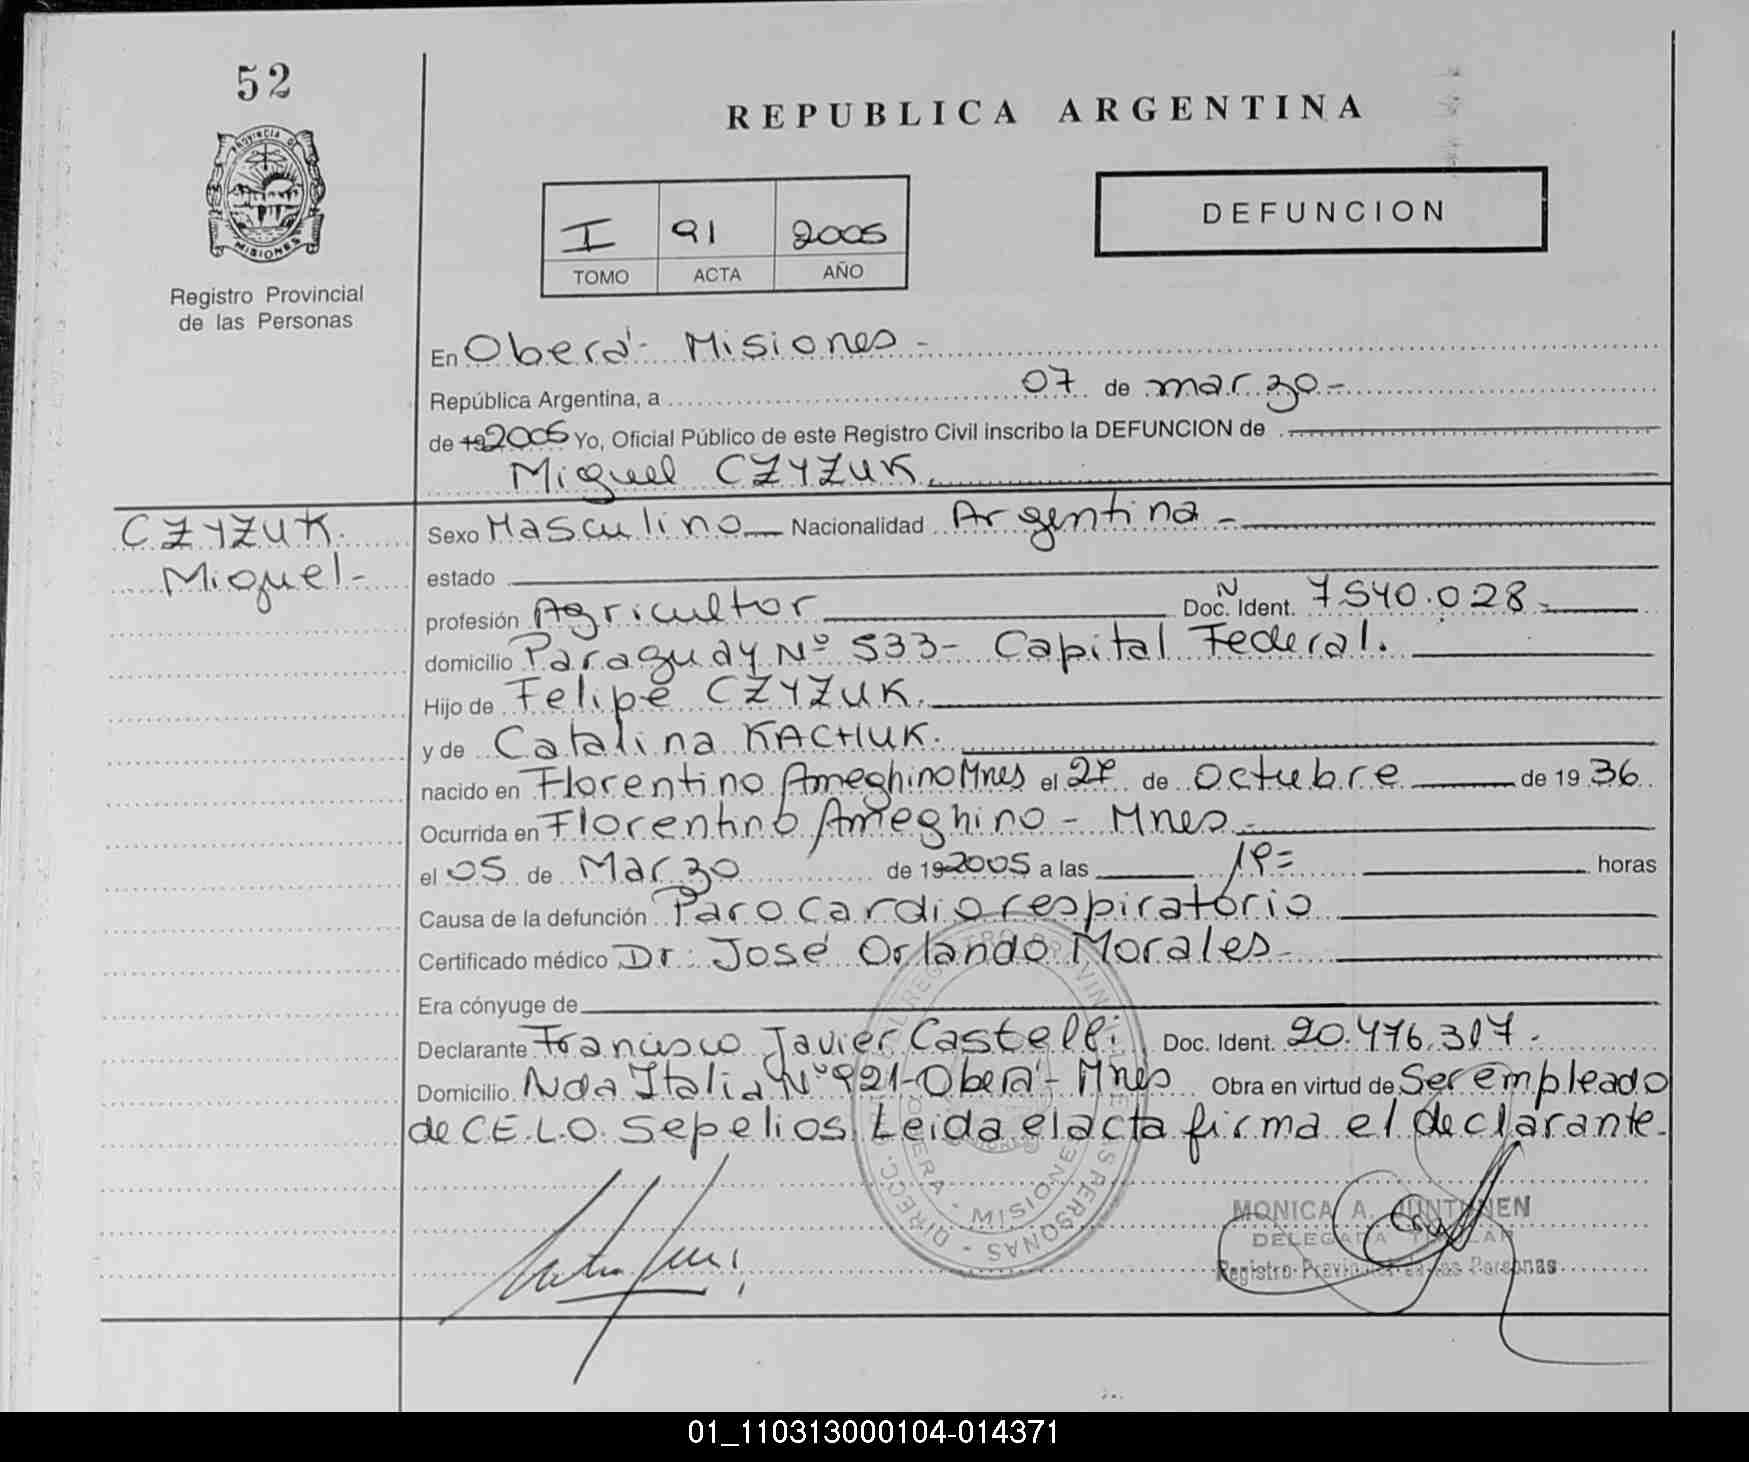 52
PROVINCIA DE
MISIONES
Registro Provincial
de las Personas
REPUBLICA ARGENTINA
DEFUNCION
I 91 2005
TOMO ACTA AÑO
En Oberá - Misiones -
República Argentina, a 07 de marzo -
de 19 2005 Yo, Oficial Público de este Registro Civil inscribo la DEFUNCION de
Miguel CZYZUK
CZYZUK.
Miguel -
Sexo Masculino Nacionalidad Argentina -
estado
profesión Agricultor Doc. N Ident. 7540.028 -
domicilio Paraguay Nº 533 - Capital Federal.
Hijo de Felipe CZYZUK.
y de Catalina KACHUK.
nacido en Florentino Ameghino Mnes el de Octubre de 19 36
Ocurrida en Florentino Ameghino - Mnes -
el 05 de Marzo de 19 2005 a las horas
Causa de la defunción Paro cardiorespiratorio
Certificado médico Dr. José Orlando Morales -
Era cónyuge de
Declarante Francisco Javier Castelli Doc. Ident.
Domicilio Nda Italia Nº 921 - Oberá - Mnes Obra en virtud de Ser empleado
de C.E.L.O. Sepelios. Leida el acta firma el declarante.
MONICA A.
DELEGADA TITULAR
Registro Provincial de las Personas
01_110313000104-014371